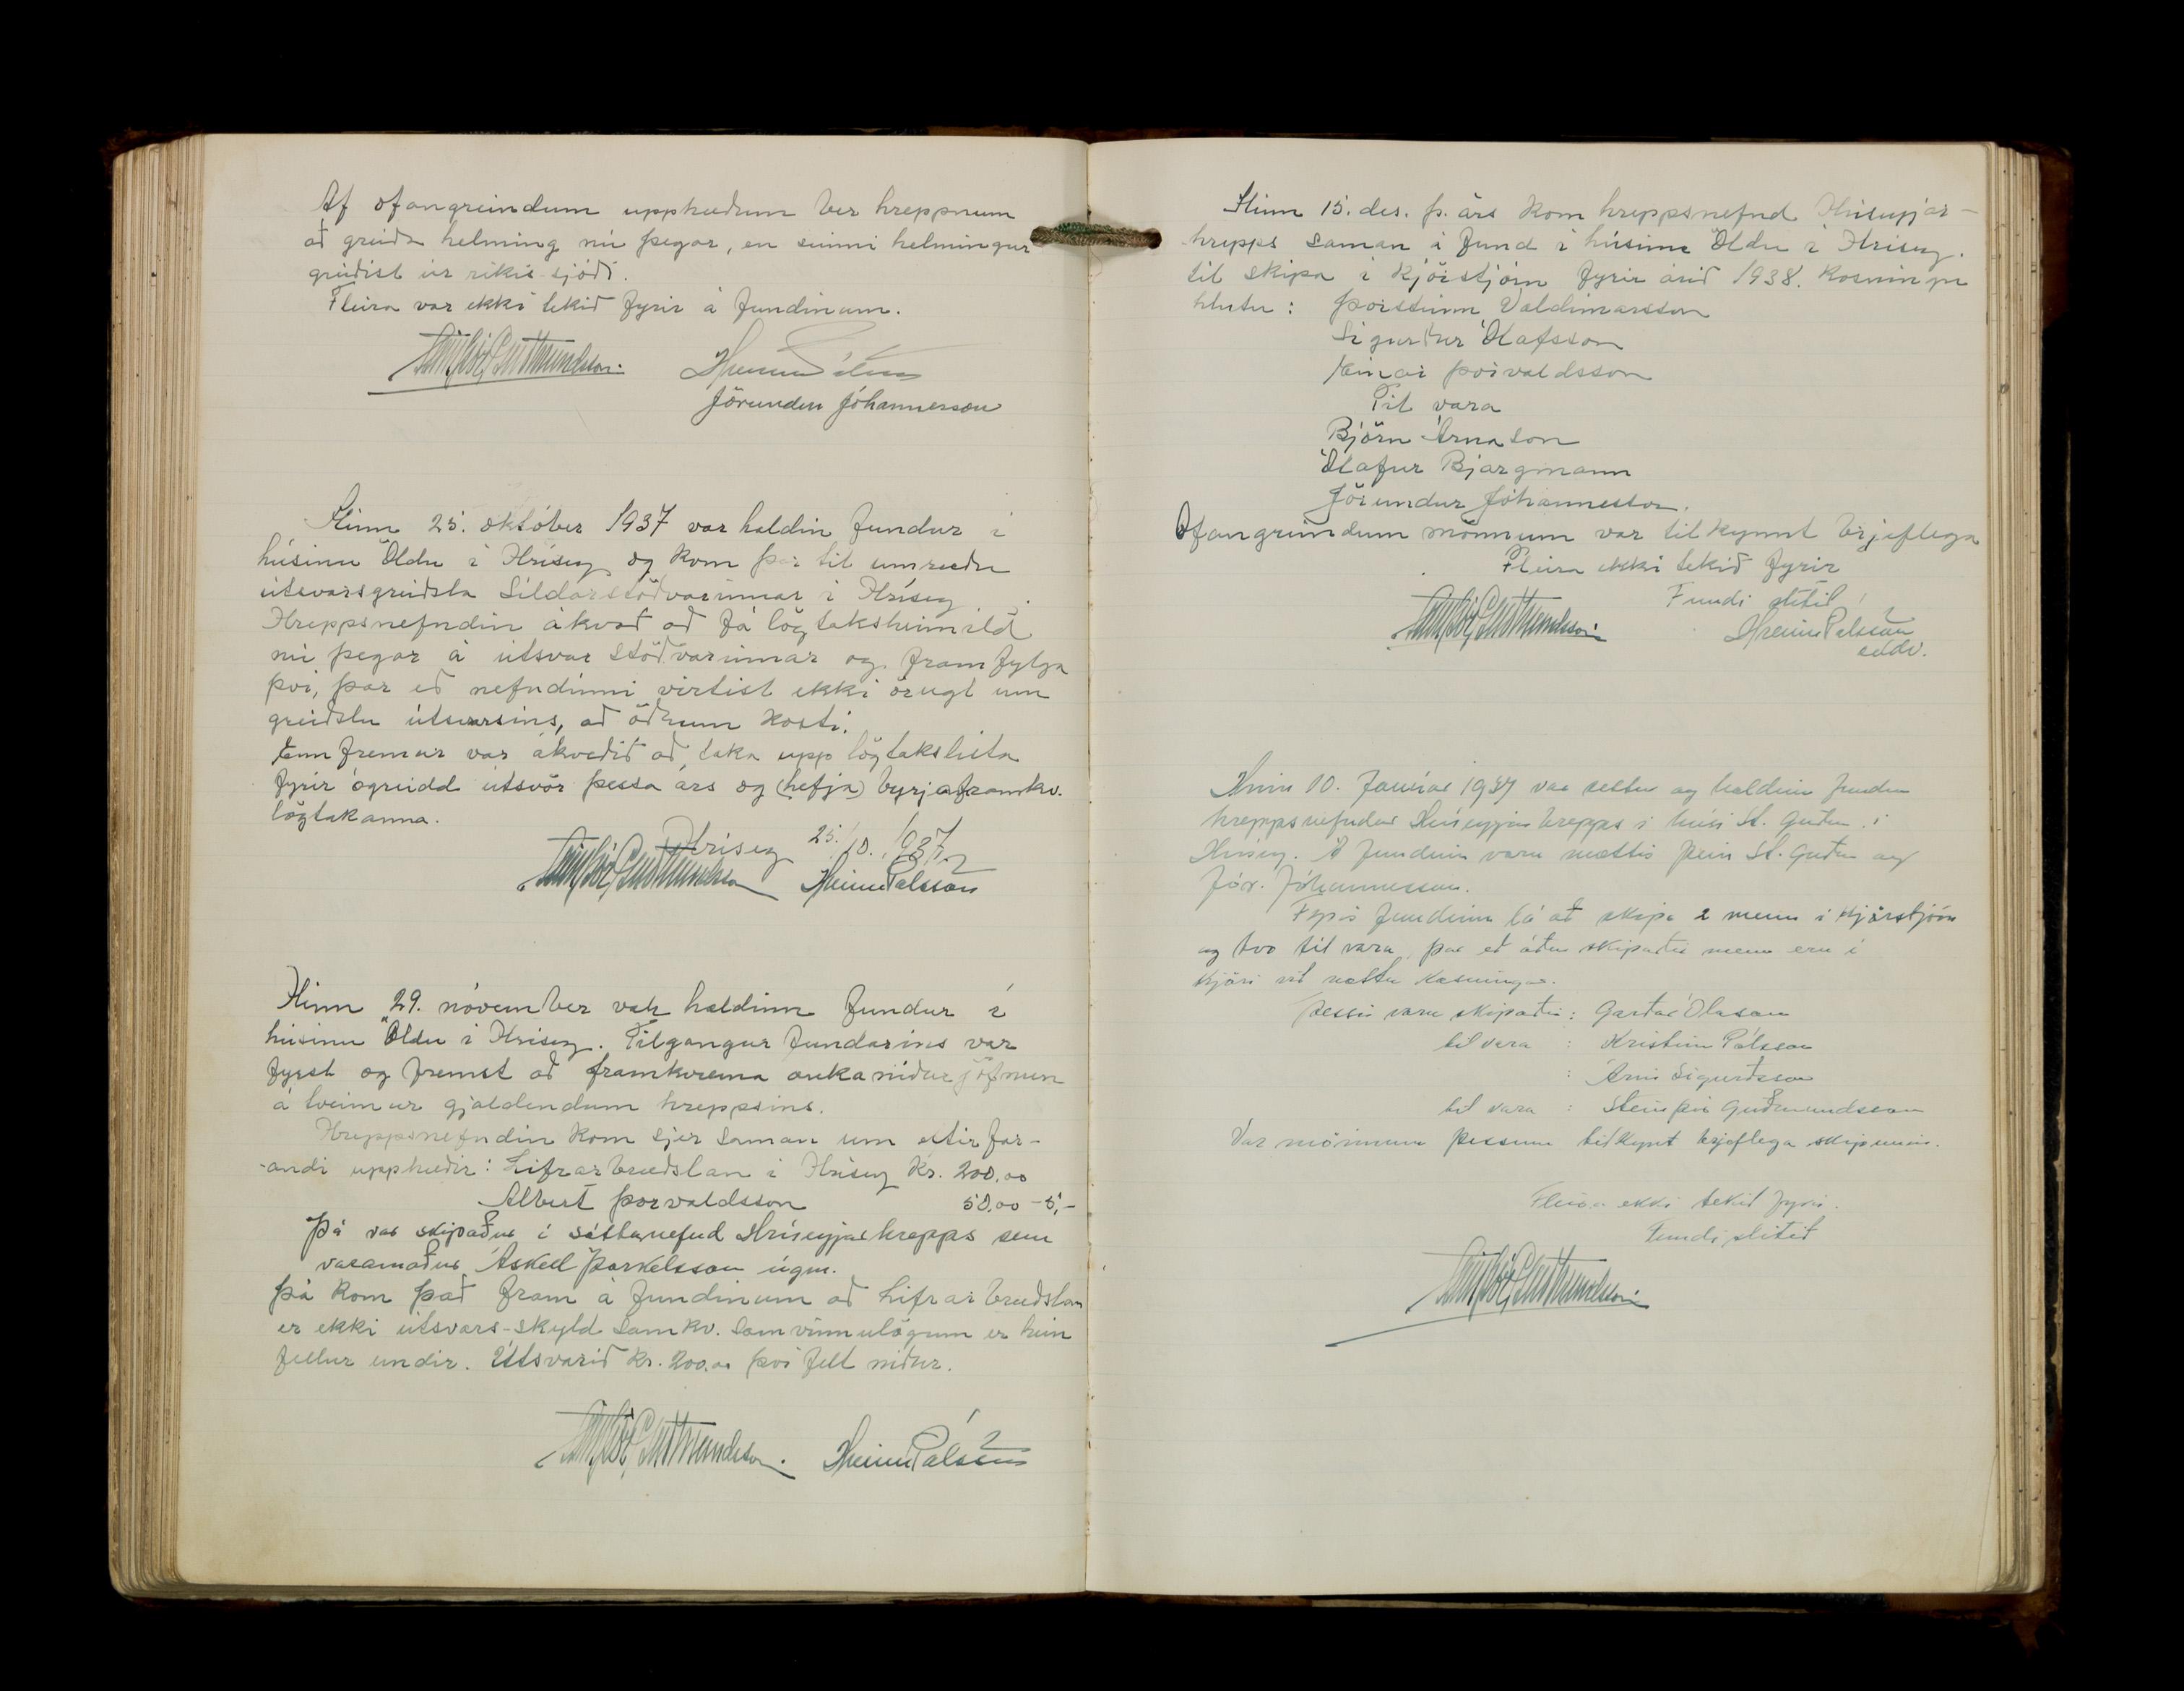 Af ofangreindum upphæðum ber hreppnum
að greiða helming nú þegar, en seinni helmingur
greiðist úr ríkis sjóði.
Fleira var ekki tekið fyrir á fundinum.
Steinþór Guðmundsson. Hreinn Pálsson
Jörundur Jóhannesson
Hinn 25. október 1937 var haldin fundur í
húsinu Öldu í Hrísey og kom þar til umræðu
útsvarsgreiðsla Síldarstöðvarinnar í Hrísey
Hreppsnefndin ákvað að fá lögtaksheimild
nú þegar á útsvar stöðvarinnar og framfylgja
því, þar eð nefndinni virtist ekki örugt um
greiðslu útsvarsins, að öðrum kosti.
Enn fremur var ákveðið að taka upp lögtakslista
fyrir ógreidd útsvör þessa árs og (hefja) byrja framkv.
lögtakanna.
Hrísey 25./10. 1937.
Steinþór Guðmundsson Hreinn Pálsson
Hinn 29. nóvember var haldinn fundur í
húsinu Öldu í Hrísey. Tilgangur fundarins var
fyrst og fremst að framkvæma aukaniðurjöfnun
á tveimur gjaldendum hreppsins.
Hreppsnefndin kom sjer saman um eftirfar-
-andi upphæðir: Lifrarbræðslan í Hrísey Kr. 200.00
Albert Þorvaldsson 50.00 - 5,-
Þá var skipaður í sáttanefnd Hríseyjarhrepps sem
varamaður Áskell Þorkelsson úgm.
Þá kom það fram á fundinum að Lifrarbræðslan
er ekki útsvars-skyld samkv. samvinnulögum er hún
fellur undir. Útsvarið kr. 200.00 því fellt niður.
Steinþór Guðmundsson. Hreinn Pálsson
Hinn 15. des. þ. árs kom hreppsnefnd Hríseyjar-
hrepps saman á fund í húsinu Öldu í Hrísey.
til skipa í kjörstjórn fyrir árið 1938. Kosningu
hlutu: Þorsteinn Valdimarsson
Sigurður Ólafsson
Einar Þorvaldsson
Til vara
Björn Árnason
Ólafur Bjargmann
Jörundur Jóhannesson.
Ofangreindum mönnum var tilkynnt brjeflega
Fleira ekki tekið fyrir
Fundi slitið
Steinþór Guðmundsson Hreinn Pálsson
oddv.
Hinn 10. Janúar 1937 var settur og haldinn fundur
hreppsnefndar Hríseyjarhrepps í húsi St. Guðm. í
Hrísey. Á fundinn voru mættir þeir St. Guðm og
Jör. Jóhannesson.
Fyrir fundinum lá að skipa 2 menn í kjörstjórn
og tvo til vara, þar eð áður skipaðir menn eru í
kjöri við næstu kosningar.
Þessir voru skipaðir: Garðar Ólason
til vara : Kristinn Pálsson
: Árni Sigurðsson
til vara : Steinþór Guðmundsson
Var mönnum þessum tilkynt brjeflega skipunin.
Fleira ekki tekið fyrir.
Fundi slitið
Steinþór Guðmundsson